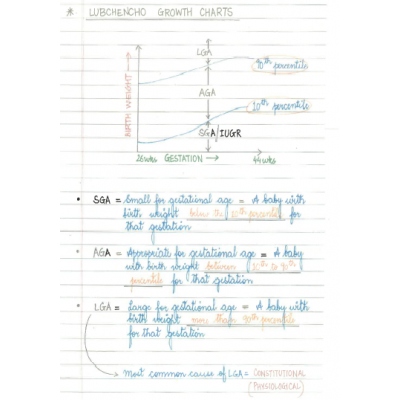 * LUBCHENCHO GROWTH CHARTS
LGA
90th percentile
BIRTH WEIGHT →
AGA
10th percentile
SGA/IUGR
26wks GESTATION → 44wks
• SGA = Small for gestational age = A baby with
birth weight below the 10th percentile for
that gestation
• AGA = Appropriate for gestational age = A baby
with birth weight between 10th to 90th
percentile for that gestation
• LGA = Large for gestational age = A baby with
birth weight more than 90th percentile
for that gestation
→ Most common cause of LGA = CONSTITUTIONAL
(PHYSIOLOGICAL)